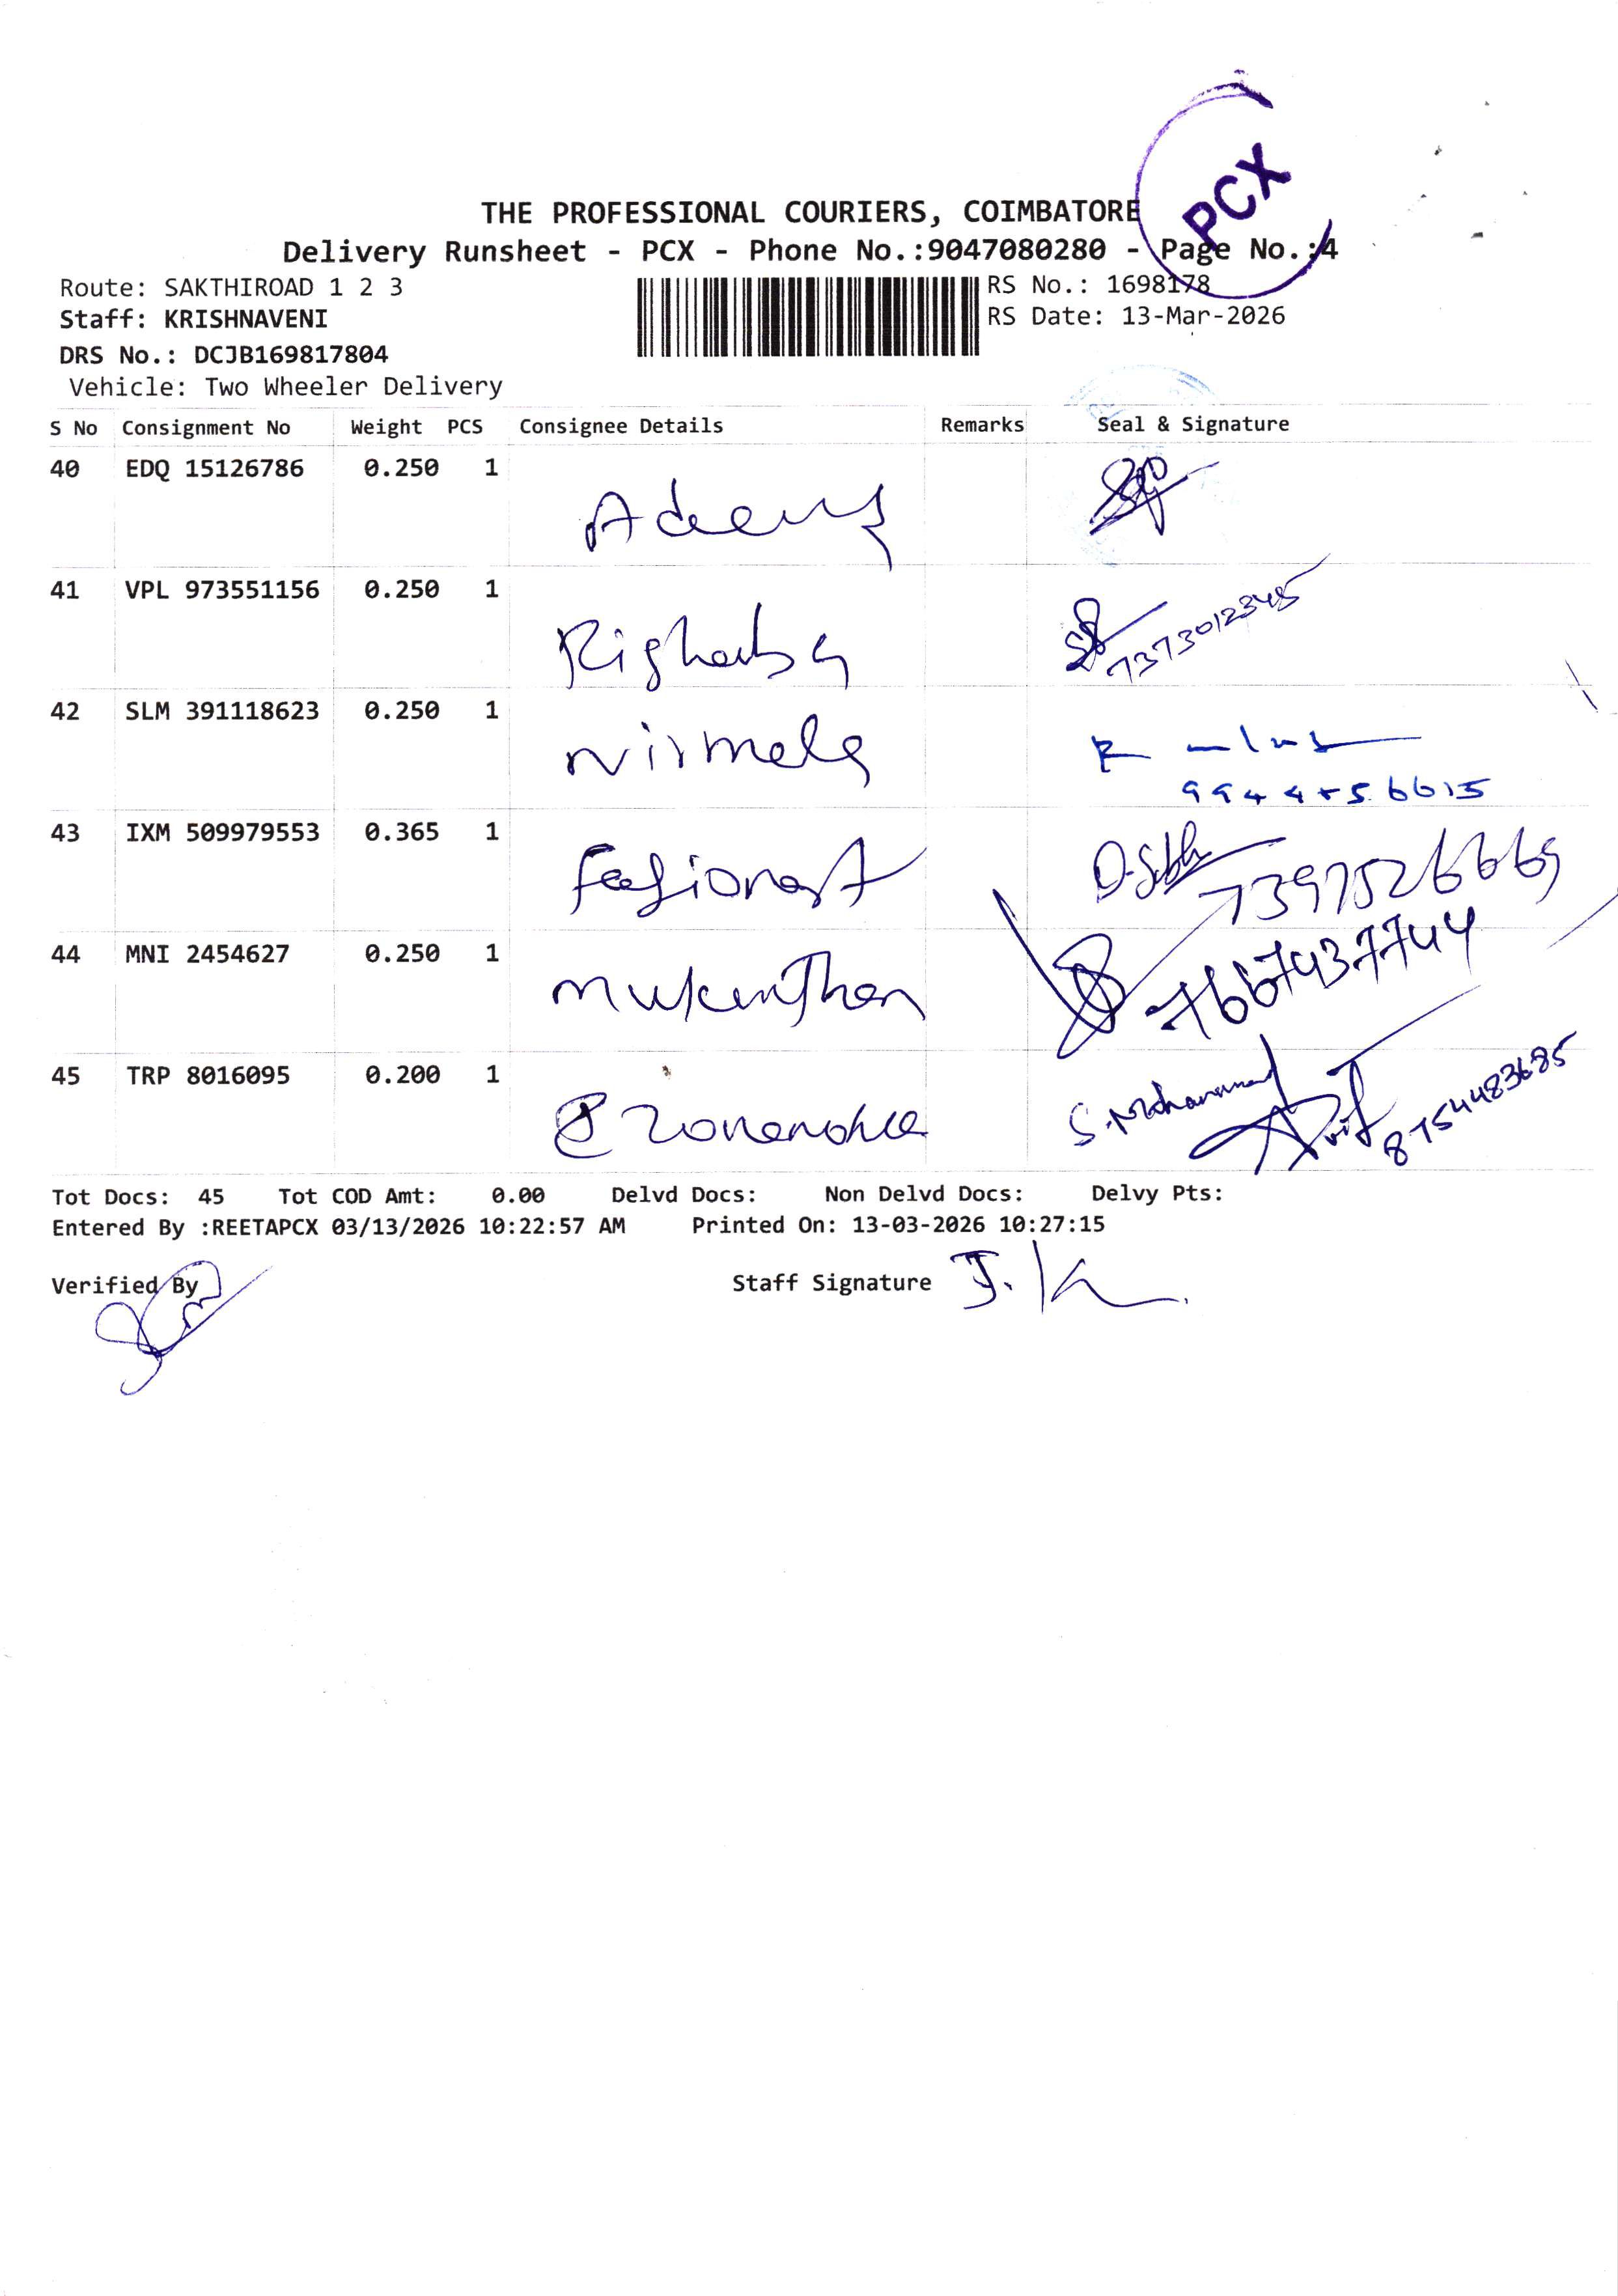 PCX
THE PROFESSIONAL COURIERS, COIMBATORE
Delivery Runsheet - PCX - Phone No.:9047080280 - Page No.:4
Route: SAKTHIROAD 1 2 3
RS No.: 1698178
Staff: KRISHNAVENI
RS Date: 13-Mar-2026
DRS No.: DCJB169817804
Vehicle: Two Wheeler Delivery
S No Consignment No Weight PCS Consignee Details Remarks Seal & Signature
40 EDQ 15126786 0.250 1
41 VPL 973551156 0.250 1
7373012345
42 SLM 391118623 0.250 1
Nirmala
43 IXM 509979553 0.365 1
7397526669
44 MNI 2454627 0.250 1
Mukunthan
7667937744
45 TRP 8016095 0.200 1
8754483685
Tot Docs: 45 Tot COD Amt: 0.00 Delvd Docs: Non Delvd Docs: Delvy Pts:
Entered By :REETAPCX 03/13/2026 10:22:57 AM Printed On: 13-03-2026 10:27:15
Verified By Staff Signature J.K